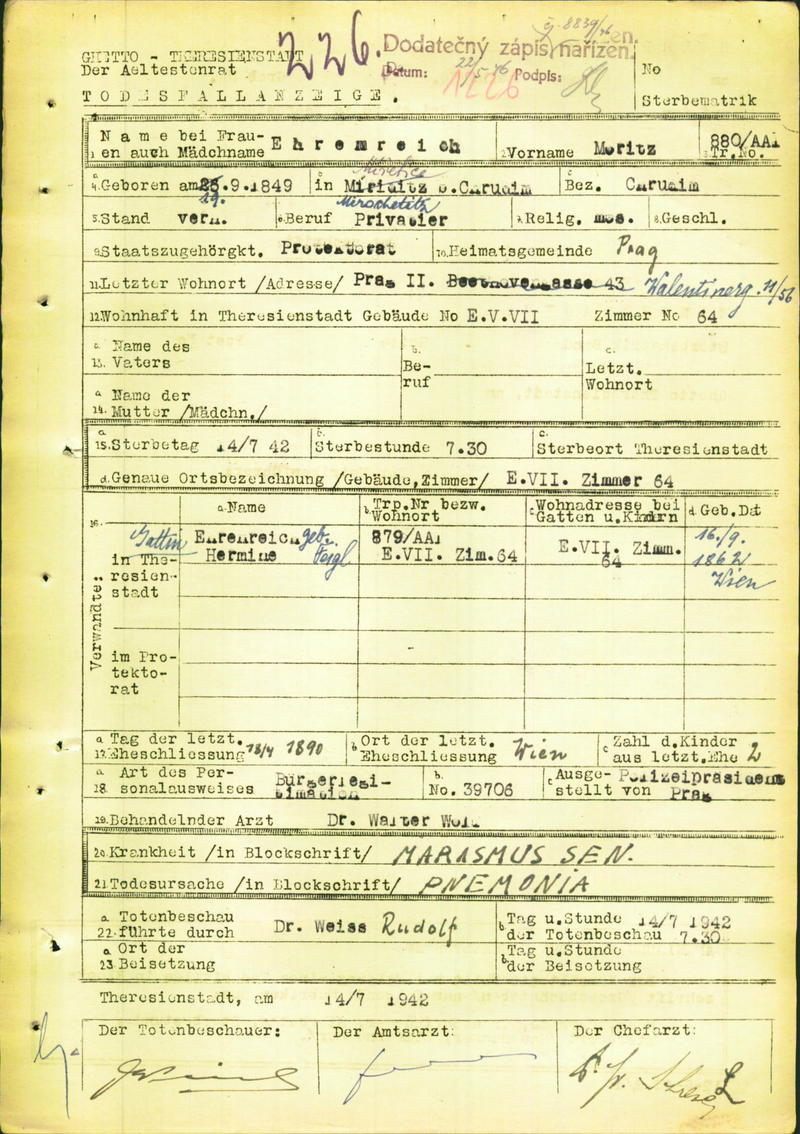 čj 8839/46
226.
Dodatečný zápis nařízen.
Datum: 22/5 46 Podpis:
1226
GHETTO - THERESIENSTADT
Der Aeltestenrat
TODESFALLANZEIGE.
No
Sterbematrik
1. Name bei Frauen auch Mädchname Ehrenreich 2. Vorname Moritz 880/AAl
3. Tr.No.
Miretice
4. Geboren am 25. 9. 1849 in b. Bez.
19. Miroschetitz
5. Stand verh. 6. Beruf Privatier 7. Relig. mos. 8. Geschl.
9. Staatszugehörgkt. Protektorat 10. Heimatsgemeinde Prag
11. Letzter Wohnort /Adresse/ Prag II. 43 Valentinerg. 11/56
12. Wohnhaft in Theresienstadt Gebäude No E.V.VII Zimmer No 64
13. a. Name des Vaters b. Beruf c. Letzt. Wohnort
14. a Name der Mutter /Mädchn./
15. a. Sterbetag 14/7 42 b. Sterbestunde 7.30 c. Sterbeort Theresienstadt
d. Genaue Ortsbezeichnung /Gebäude,Zimmer/ E.VII. Zimmer 64
16. Verwandte: a. Name b. Trp.Nr bezw. Wohnort c. Wohnadresse bei Gatten u.Kindrn d Geb.Dat
Gattin in Theresienstadt Ehrenreich geb. Feigl Hermine 879/AAl E.VII. Zim.64 E.VII. Zimm. 64 16./9. 1862 Wien
im Protektorat
17. a Tag der letzt. Eheschliessung 18/4 1890 b Ort der letzt. Eheschliessung Wien c Zahl d.Kinder aus letzt.Ehe 2
18. a Art des Personalausweises b. No. 39706 c Ausgestellt von Polizeipräsidium Prag
19. Behandelnder Arzt Dr. Walter
20. Krankheit /in Blockschrift/ MARASMUS SEN.
21. Todesursache /in Blockschrift/ PNEMONIA
22. a Totenbeschau führte durch Dr. Weiss Rudolf b Tag u.Stunde der Totenbeschau 14/7 1942 7.30
23. a Ort der Beisetzung b Tag u.Stunde der Beisetzung
Theresienstadt, am 14/7 1942
Der Totenbeschauer: Der Amtsarzt: Der Chefarzt: